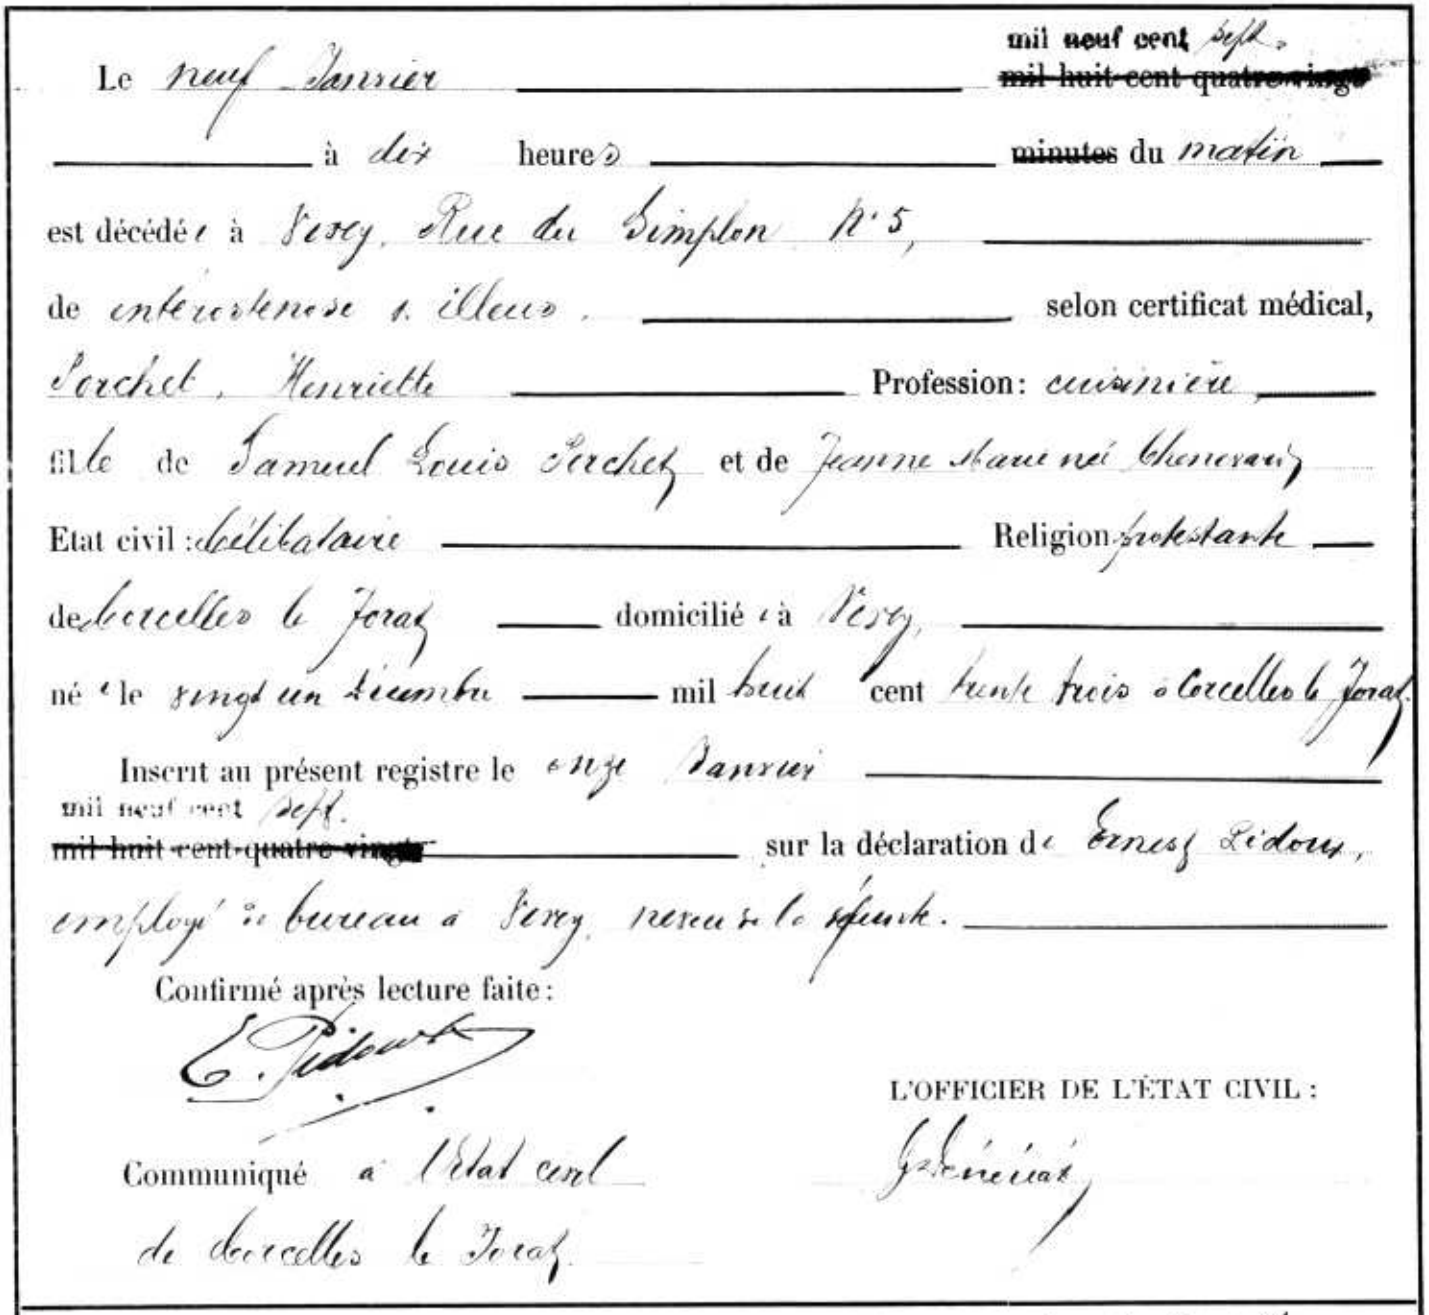 mil neuf cent sept.
Le neuf Janvier mil huit cent quatre-vingt
à dix heures minutes du matin
est décédée à Vevey, Rue du Simplon N° 5,
de enterostenose s. illeus. selon certificat médical,
Porchet, Henriette Profession: cuisinière,
fille de Samuel Louis Porchet et de Jeanne Marie née Chenevard
Etat civil: Célibataire Religion protestante
de Corcelles le Jorat domiciliée à Vevey,
née le vingt un Décembre mil huit cent trente trois à Corcelles le Jorat.
Inscrit au présent registre le onze Janvier
mil neuf cent sept.
mil huit cent quatre-vingt sur la déclaration de Ernest Pidoux,
employé de bureau à Vevey, neveu de la défunte.
Confirmé après lecture faite:
E. Pidoux
L'OFFICIER DE L'ÉTAT CIVIL:
Communiqué à l'Etat civil
de Corcelles le Jorat.